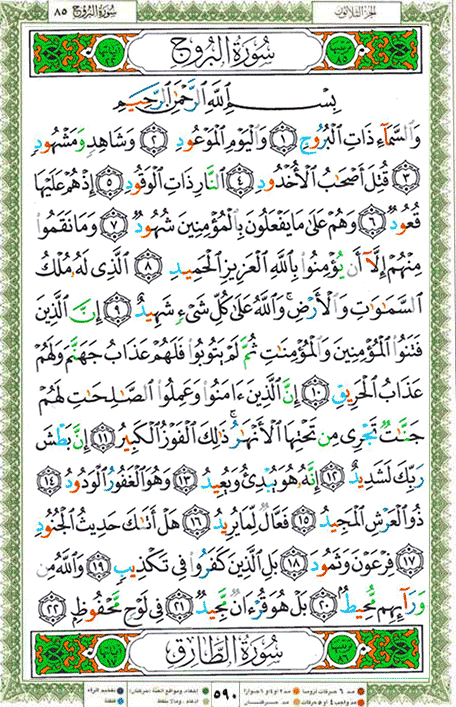 سُورَةُ البُرُوجِ ٨٥ الجُزءُ الثَّلاثُونَ
سُورَةُ البُرُوجِ
بِسْمِ ٱللَّهِ ٱلرَّحْمَٰنِ ٱلرَّحِيمِ
وَٱلسَّمَآءِ ذَاتِ ٱلْبُرُوجِ ١ وَٱلْيَوْمِ ٱلْمَوْعُودِ ٢ وَشَاهِدٍ وَمَشْهُودٍ
٣ قُتِلَ أَصْحَٰبُ ٱلْأُخْدُودِ ٤ ٱلنَّارِ ذَاتِ ٱلْوَقُودِ ٥ إِذْ هُمْ عَلَيْهَا
قُعُودٌ ٦ وَهُمْ عَلَىٰ مَا يَفْعَلُونَ بِٱلْمُؤْمِنِينَ شُهُودٌ ٧ وَمَا نَقَمُوا۟
مِنْهُمْ إِلَّآ أَن يُؤْمِنُوا۟ بِٱللَّهِ ٱلْعَزِيزِ ٱلْحَمِيدِ ٨ ٱلَّذِى لَهُۥ مُلْكُ
ٱلسَّمَٰوَٰتِ وَٱلْأَرْضِ ۚ وَٱللَّهُ عَلَىٰ كُلِّ شَىْءٍ شَهِيدٌ ٩ إِنَّ ٱلَّذِينَ
فَتَنُوا۟ ٱلْمُؤْمِنِينَ وَٱلْمُؤْمِنَٰتِ ثُمَّ لَمْ يَتُوبُوا۟ فَلَهُمْ عَذَابُ جَهَنَّمَ وَلَهُمْ
عَذَابُ ٱلْحَرِيقِ ١٠ إِنَّ ٱلَّذِينَ ءَامَنُوا۟ وَعَمِلُوا۟ ٱلصَّٰلِحَٰتِ لَهُمْ
جَنَّٰتٌ تَجْرِى مِن تَحْتِهَا ٱلْأَنْهَٰرُ ۚ ذَٰلِكَ ٱلْفَوْزُ ٱلْكَبِيرُ ١١ إِنَّ بَطْشَ
رَبِّكَ لَشَدِيدٌ ١٢ إِنَّهُۥ هُوَ يُبْدِئُ وَيُعِيدُ ١٣ وَهُوَ ٱلْغَفُورُ ٱلْوَدُودُ ١٤
ذُو ٱلْعَرْشِ ٱلْمَجِيدُ ١٥ فَعَّالٌ لِّمَا يُرِيدُ ١٦ هَلْ أَتَىٰكَ حَدِيثُ ٱلْجُنُودِ
١٧ فِرْعَوْنَ وَثَمُودَ ١٨ بَلِ ٱلَّذِينَ كَفَرُوا۟ فِى تَكْذِيبٍ ١٩ وَٱللَّهُ مِن
وَرَآئِهِم مُّحِيطٌ ٢٠ بَلْ هُوَ قُرْءَانٌ مَّجِيدٌ ٢١ فِى لَوْحٍ مَّحْفُوظٍ ٢٢
سُورَةُ الطَّارِقِ
٥٩٠